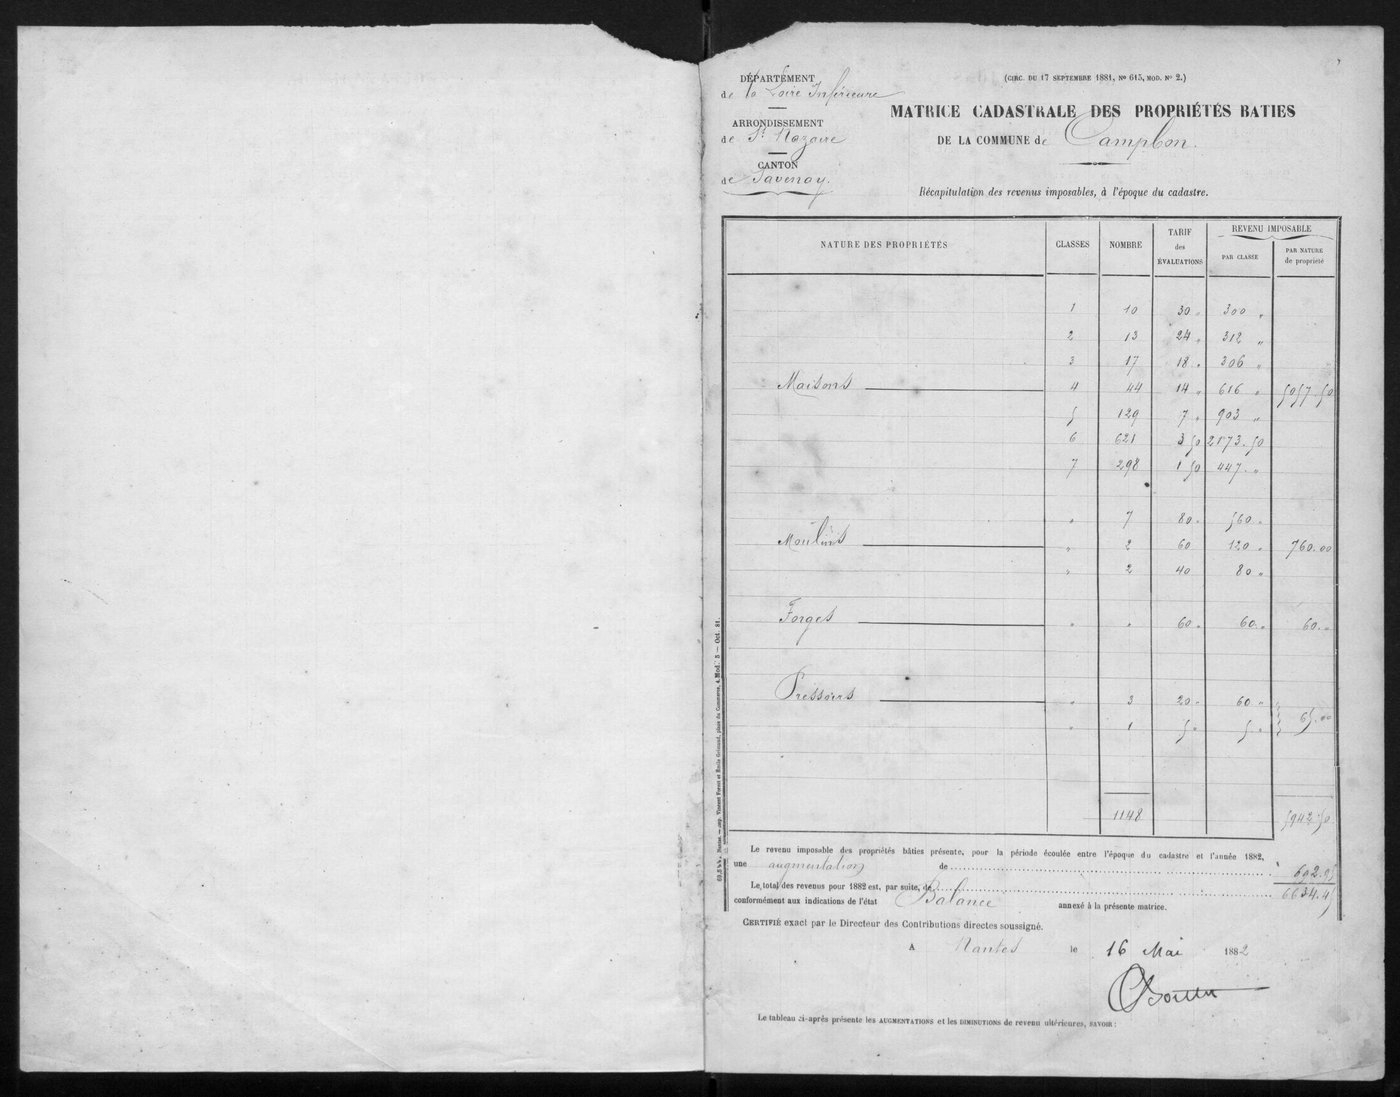 DÉPARTEMENT
de la Loire Inférieure
ARRONDISSEMENT
de St Nazaire
CANTON
de Savenay.
(CIRC. DU 17 SEPTEMBRE 1881, No 615, MOD. No 2.)
MATRICE CADASTRALE DES PROPRIÉTÉS BATIES
DE LA COMMUNE de Campbon.
Récapitulation des revenus imposables, à l'époque du cadastre.
NATURE DES PROPRIÉTÉS CLASSES NOMBRE TARIF des ÉVALUATIONS REVENU IMPOSABLE
PAR CLASSE PAR NATURE de propriété
1 10 30 " 300 "
2 13 24 " 312 "
3 17 18 " 306 "
Maisons 4 44 14 " 616 " 5057.50
5 129 7 " 903 "
6 621 3 50 2173.50
7 298 1 50 447. "
" 7 80 " 560 "
Moulins " 2 60 120 " 760.00
" 2 40 80 "
Forges " " 60 " 60. " 60. "
Pressoirs " 3 20 " 60 "
" 1 5 " 5 " 65.00
1148 5942.50
Le revenu imposable des propriétés bâties présente, pour la période écoulée entre l'époque du cadastre et l'année 1882,
une augmentation de 692.95
Le total des revenus pour 1882 est, par suite, de 6634.45
conformément aux indications de l'état Balance annexé à la présente matrice.
CERTIFIÉ exact par le Directeur des Contributions directes soussigné.
A Nantes le 16 Mai 1882
Le tableau ci-après présente les AUGMENTATIONS et les DIMINUTIONS de revenu ultérieures, SAVOIR :